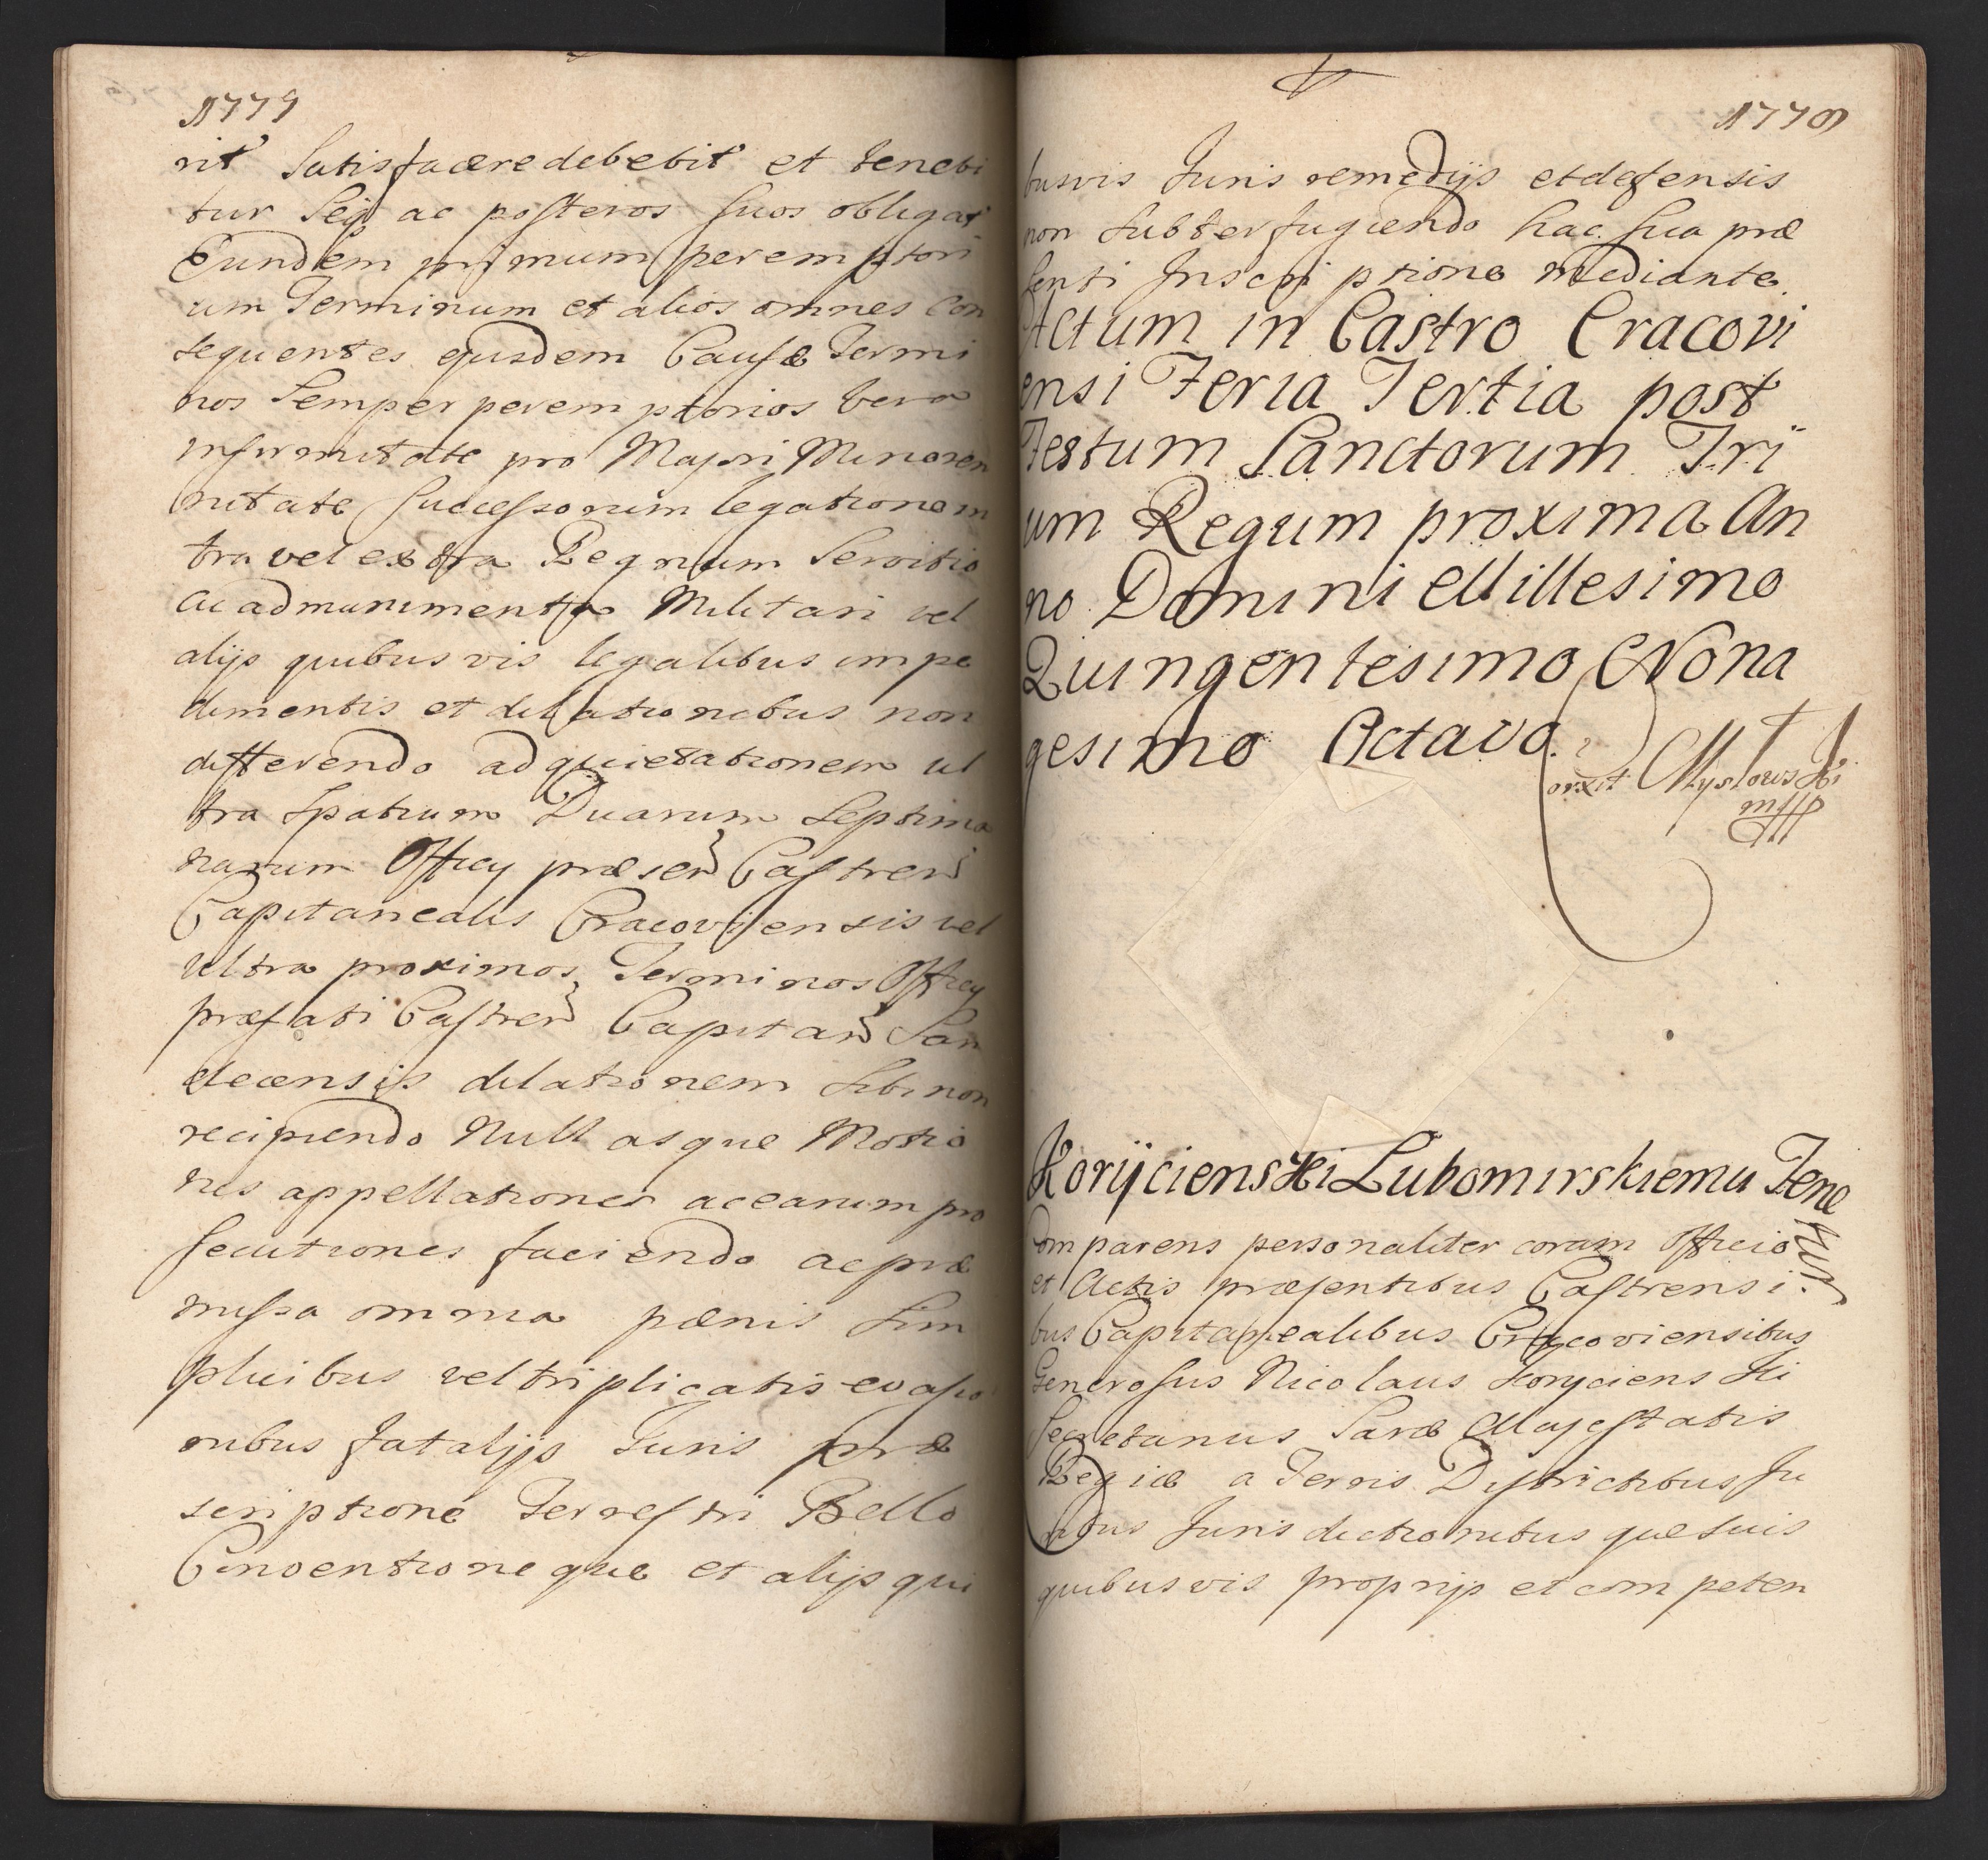 1779
rit Satisfacere debebit et tenebi
tur Seq ac posteros suos obligat
Eundem primum peremptori
um Terminum et alios omnes con
sequentes ejusdem Causæ Termi
nos Semper peremptorios vera
infirmitate pro Majori Minoren
nitate Successorum legatione in
tra vel extra Regnum Servitio
ac ad munimenta Militari vel
alijs quibusvis legalibus impe
dimentis et dilationibus non
differendo ad quietationem ul
tra Spatium Duarum Septima
narum Officy præsen Castren
Capitanealis Cracoviensis vel
ultra proximos Terminos Officy
præfati Castren Capitan San
decensis dilationem Sibi non
recipiendo Nullasque Motio
nes appellationes ac earum pro
secutiones faciendo ac præ
missa omnia pænis Sim
plicibus vel triplicatis evasio
nibus fatalijs Juris præ
scriptione Terrestri Bello
Conventioneque et alijs qui
1779
busvis Juris remedijs et defensis
non Subterfugiendo hac sua præ
senti Inscriptione mediante.
Actum in Castro Cracovi
ensi Feria Tertia post
Festum Sanctorum Tri
um Regum proxima An
no Domini Millesimo
Quingentesimo Nona
gesimo Octavo.
orxit Mysłowski
mpp
Korycienski Lubomirskiemu Tene
tur
Comparens personaliter coram Officio
et Actis præsentibus Castrensi
bus Capitanealibus Cracoviensibus
Generosus Nicolaus Koryciens ki
Secretarius Sacræ Majestatis
Regiæ a Terris Districtibus Ju
ribus Jurisdictionibus que suis
quibusvis proprijs et competen